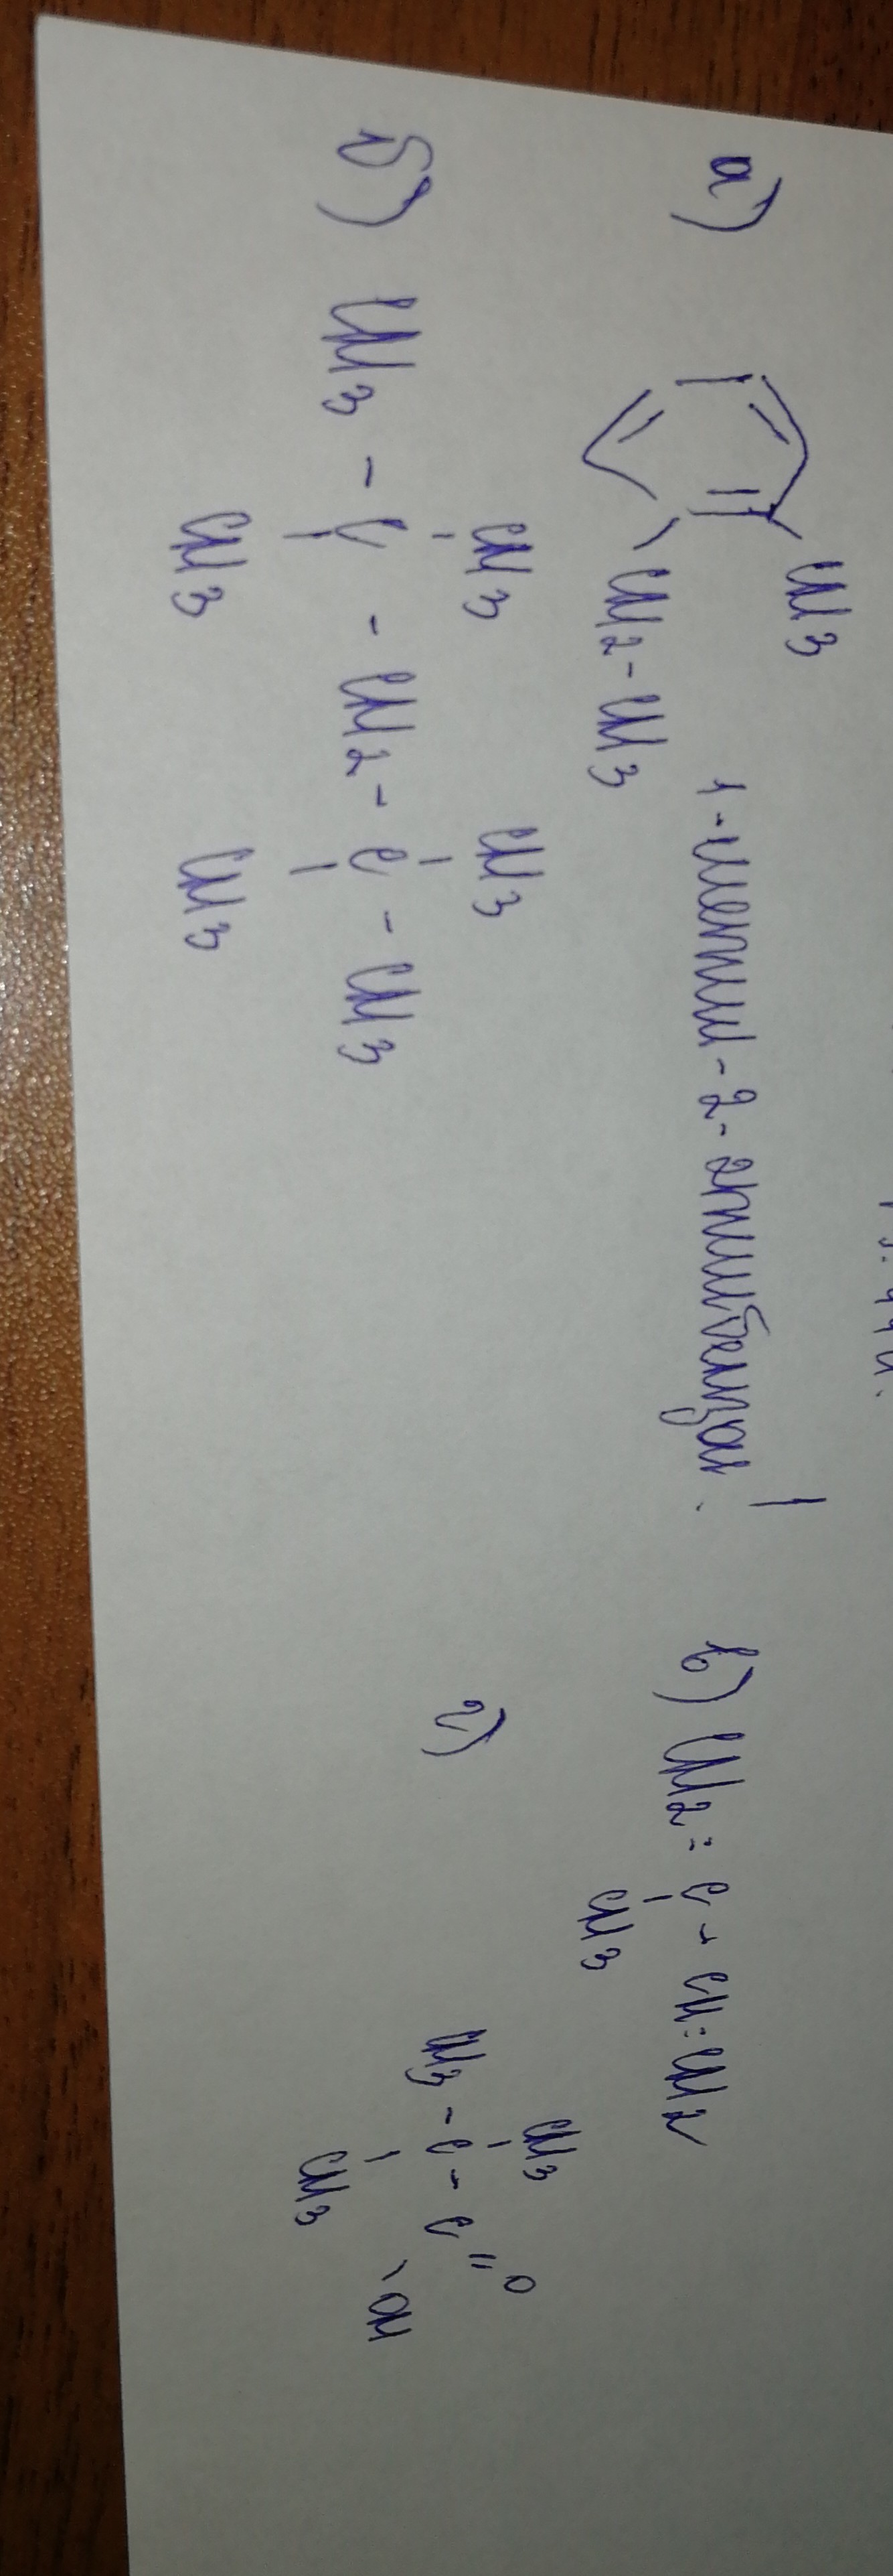 а) CH3
CH2-CH3
1-метил-2-этилбензол.
б) CH3 CH3
CH3 - C - CH2 - C - CH3
CH3 CH3
в) CH2=C-CH=CH2
CH3
г) CH3
CH3-C-C=O
CH3 OH